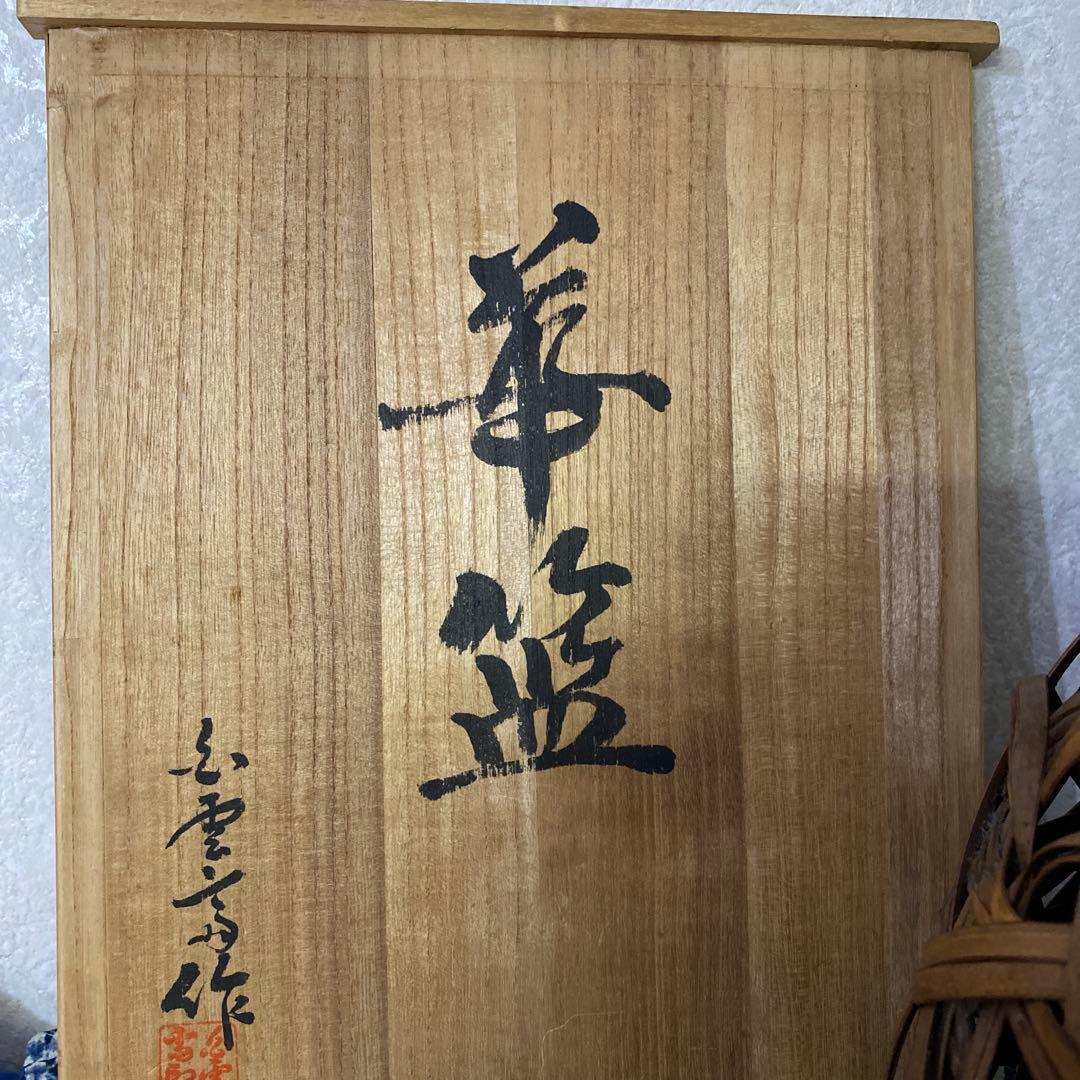 華籃
石雲斎作